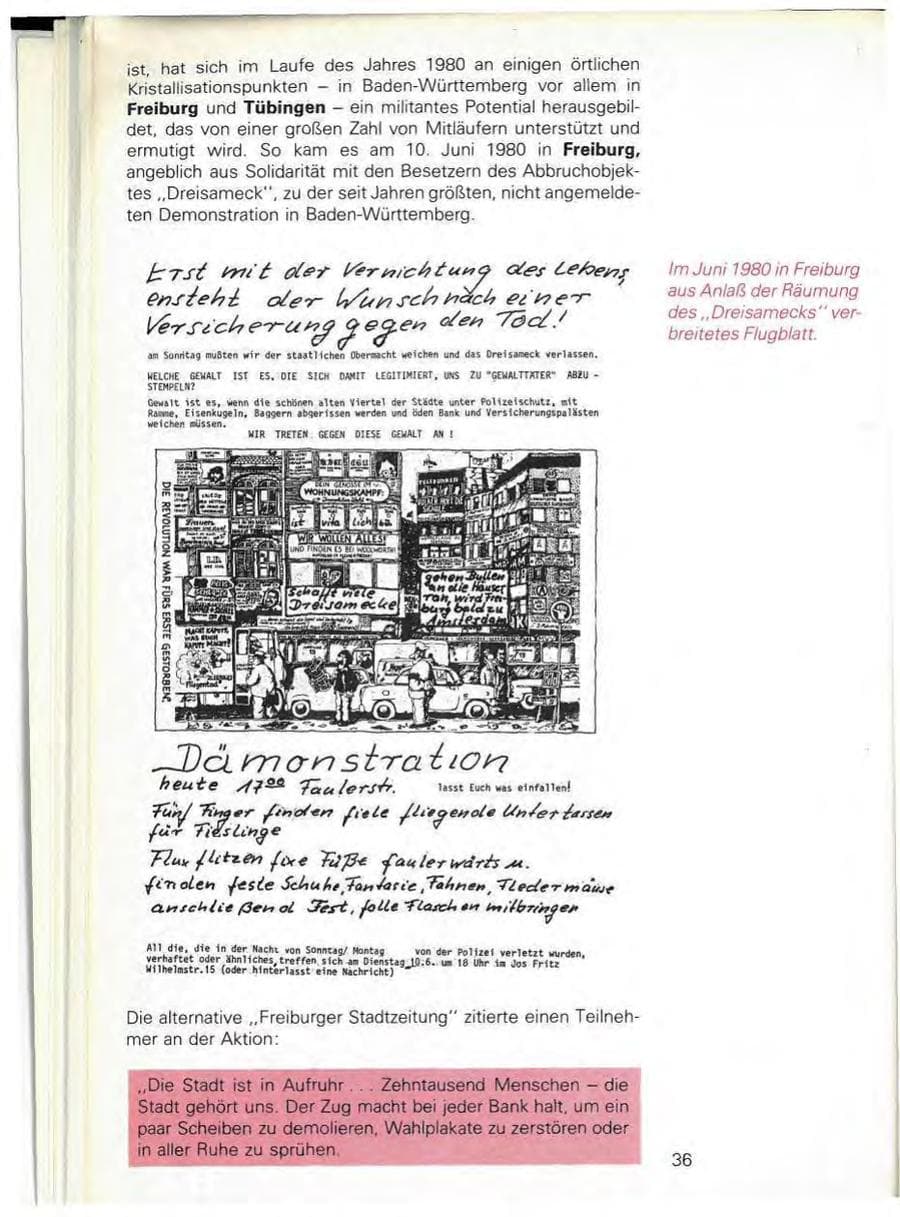 ist, hat sich im Laufe des Jahres 1980 an einigen örtlichen
Kristallisationspunkten – in Baden-Württemberg vor allem in
Freiburg und Tübingen – ein militantes Potential herausgebil-
det, das von einer großen Zahl von Mitläufern unterstützt und
ermutigt wird. So kam es am 10. Juni 1980 in Freiburg,
angeblich aus Solidarität mit den Besetzern des Abbruchobjek-
tes ,,Dreisameck'', zu der seit Jahren größten, nicht angemelde-
ten Demonstration in Baden-Württemberg.
Erst mit der Vernichtung des Lebens,
ensteht der Wunsch nach einer
Versicherung gegen den Tod!
Im Juni 1980 in Freiburg
aus Anlaß der Räumung
des ,,Dreisamecks'' ver-
breitetes Flugblatt.
am Sonntag mußten wir der staatlichen Obermacht weichen und das Dreisameck verlassen.
WELCHE GEWALT IST ES, DIE SICH DAMIT LEGITIMIERT, UNS ZU "GEWALTTÄTER" ABZU -
STEMPELN?
Gewalt ist es, wenn die schönen alten Viertel der Städte unter Polizeischutz, mit
Ramme, Eisenkugeln, Baggern abgerissen werden und öden Bank und Versicherungspalästen
weichen müssen.
WIR TRETEN GEGEN DIESE GEWALT AN !
DIE REVOLUTION WAR FÜRS ERSTE GESTORBEN.
DEIN GENOSSE IM
WOHNUNGSKAMPF:
ist vita lich
WIR WOLLEN ALLES!
UND FINDEN ES BEI WOOLWORTH!
Frauen
Schafft viele
Dreisamecke
gehen Bullen
an die Häuser
ran, wird Frei-
burg bald zu
Amsterdam
MACHT KAPUTT,
WAS EUCH
KAPUTT MACHT!
Dämonstration
heute 17⁰⁰ Faulerstr. lasst Euch was einfallen!
Fünf Finger finden fiele fliegende Untertassen
für Fieslinge
Flux flitzen fixe Füße faulerwärts u.
finden feste Schuhe, Fantasie, Fahnen, Fledermäuse
anschließend Fest, folle Flaschen mitbringen
All die, die in der Nacht von Sonntag/ Montag von der Polizei verletzt wurden,
verhaftet oder ähnliches, treffen sich am Dienstag 10.6. um 18 Uhr im Jos Fritz
Wilhelmstr.15 (oder hinterlasst eine Nachricht)
Die alternative ,,Freiburger Stadtzeitung'' zitierte einen Teilneh-
mer an der Aktion:
,,Die Stadt ist in Aufruhr . . . Zehntausend Menschen – die
Stadt gehört uns. Der Zug macht bei jeder Bank halt, um ein
paar Scheiben zu demolieren, Wahlplakate zu zerstören oder
in aller Ruhe zu sprühen.
36